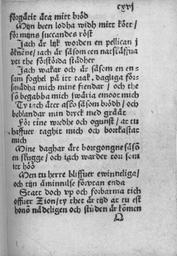 cxvj
forgätit äta mitt bröd
Myn been lodha widh mitt kött/
för myns suckandes röst
Jach är lijk worden en pellican j
öknene/ jach är såsom een nattskäffua
vthi the förstörda städher
Jach wakar och är såsom en en
sam foghel på itt taak. dagliga för
smädha mich mine fiendar / och the
so begabba mich swäria emoot mich
Ty iach äter asko såsom brödh / och
beblandar min dryck med gråt
För tine wredhe och ogunst / at tu
haffuer vaghit mich och bortkastat
mich
Mine daghar äre bortgongne såsom
en skugge / och iach warder torr som
itt höö
Men tu herre bliffuer ewinneliga/
och tijn åminnilse förvtan enda
Statt doch vp och forbarma tich
offuer Zion/ty thet är tijd at tu est
henne nådeligen och stunden är komen